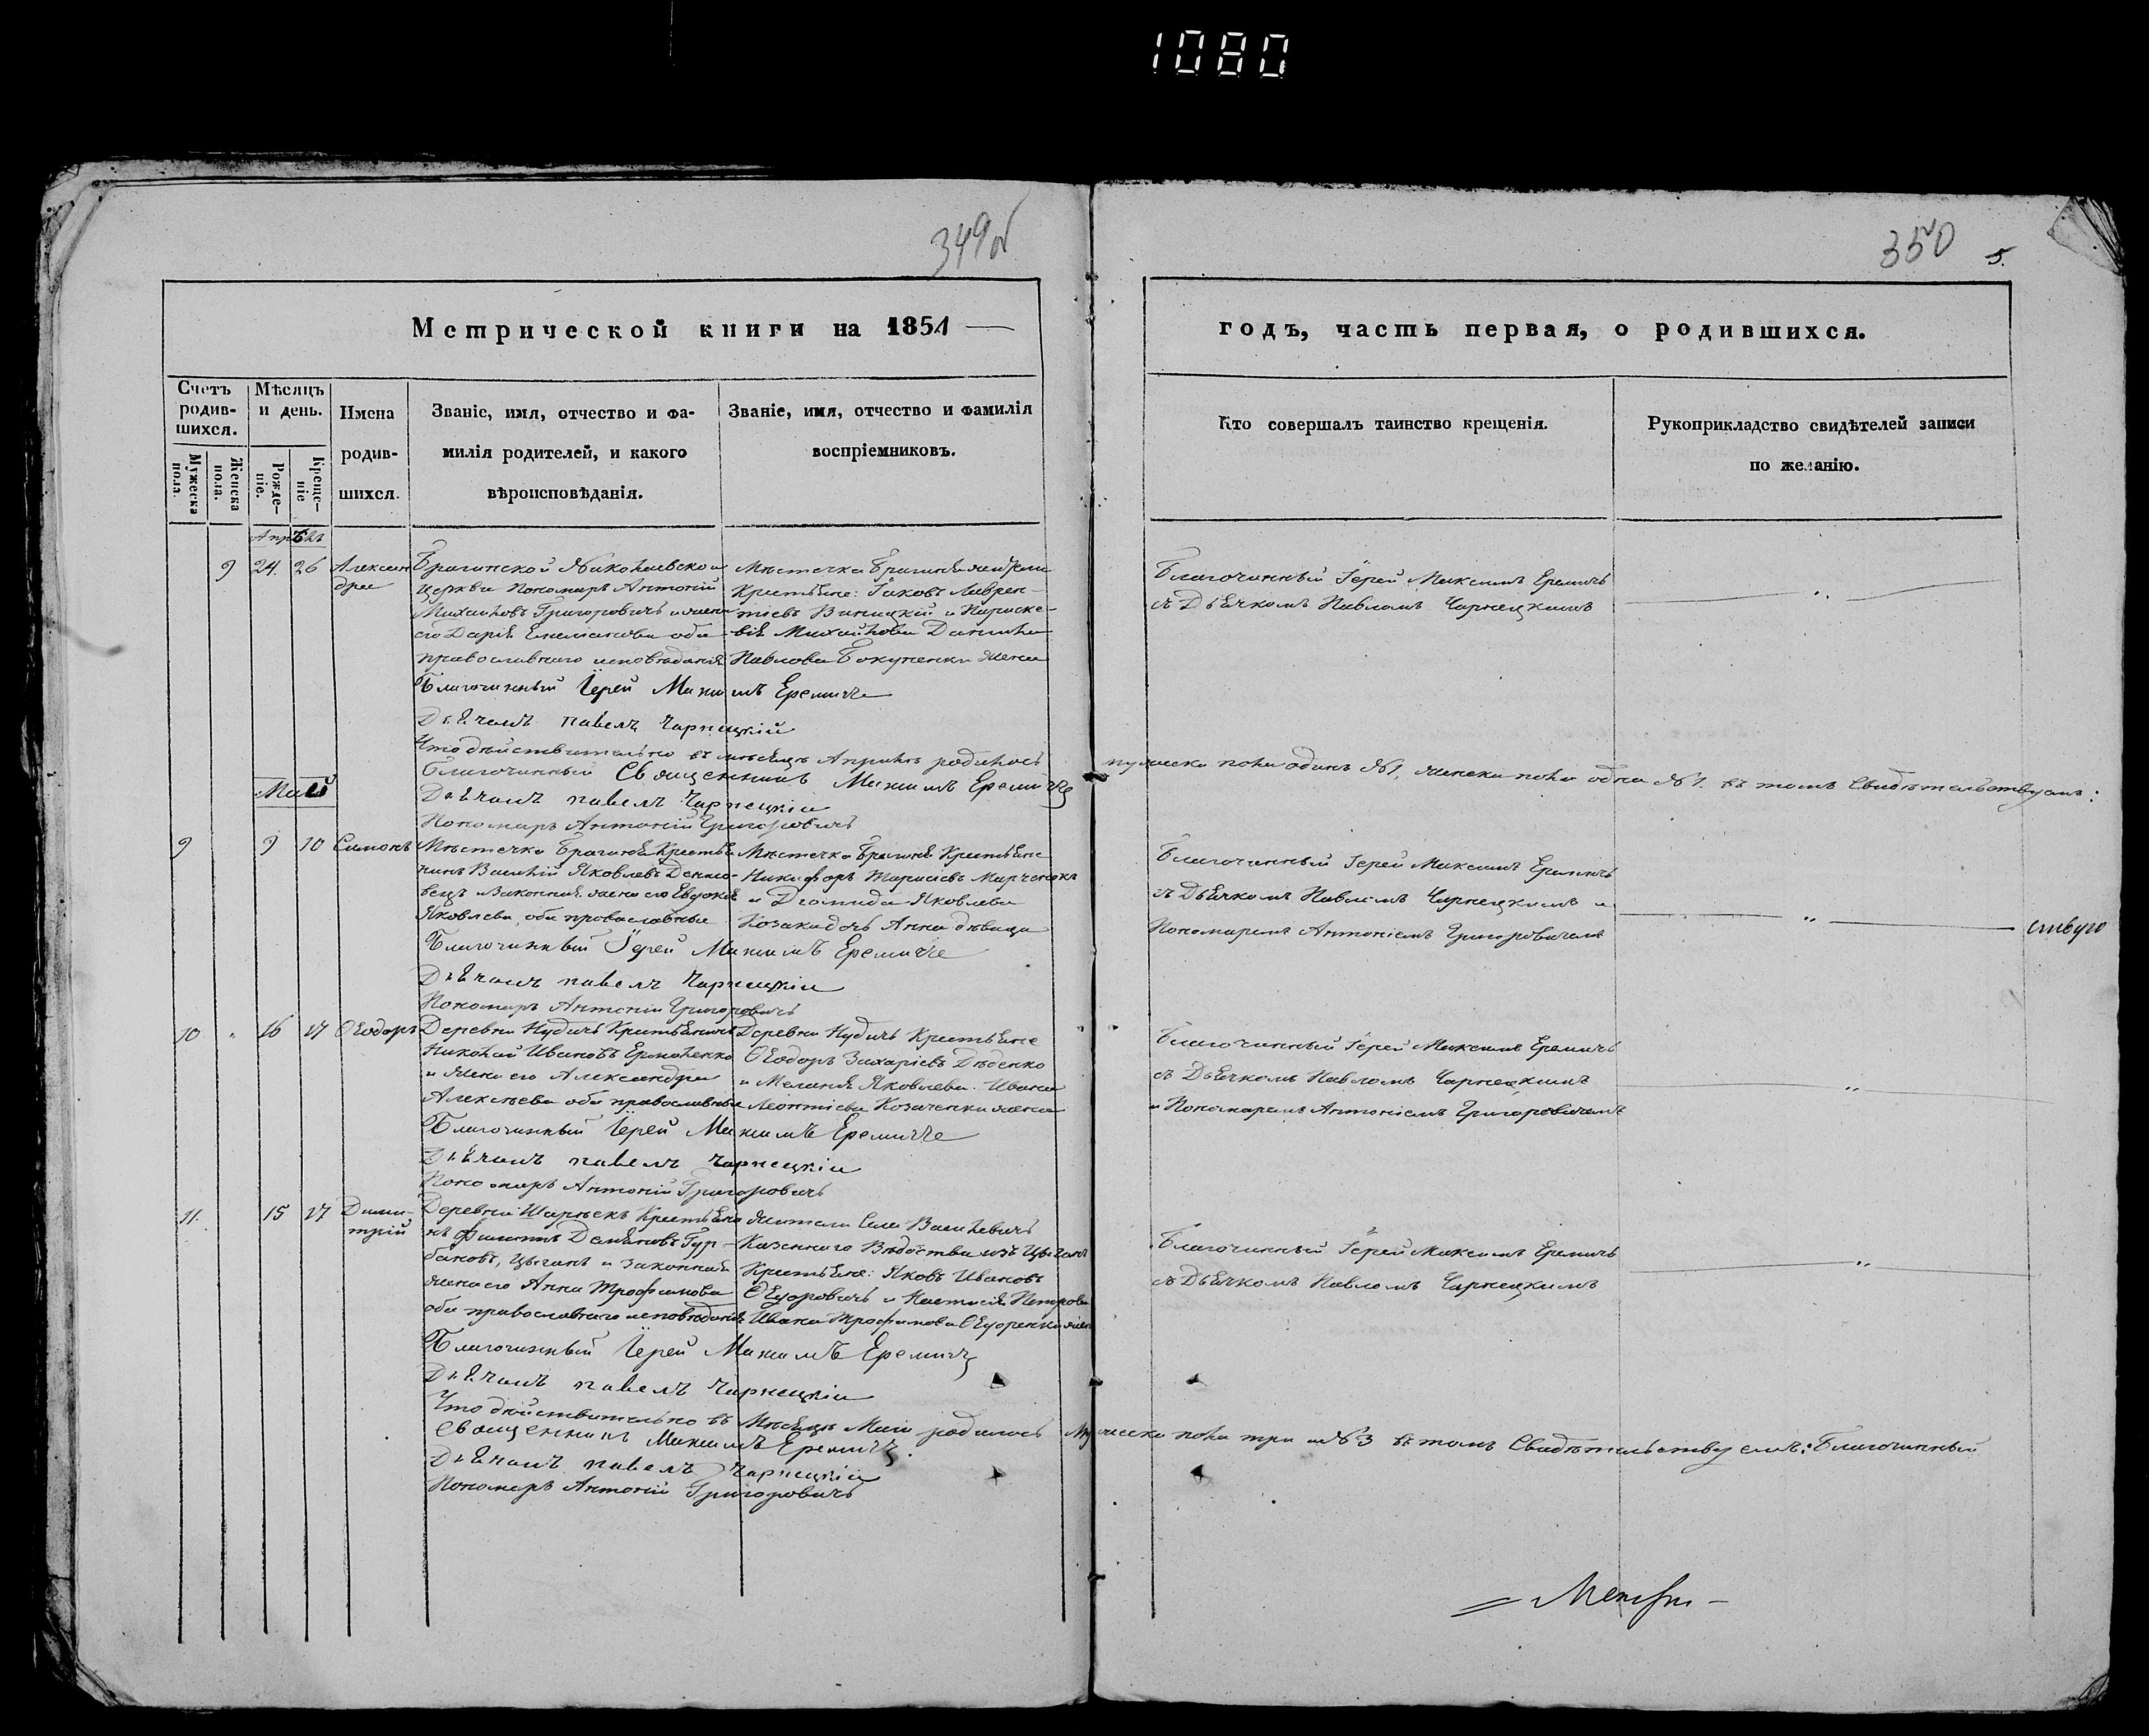 1080
349об
350
5.
Метрической книги на 1851
годъ, часть первая, о родившихся.
Счетъ родив-
шихся.
Мѣсяцъ
и день.
Имена
родив-
шихся.
Званіе, имя, отчество и фа-
милія родителей, и какого
вѣроисповѣданія.
Званіе, имя, отчество и фамилія
воспріемниковъ.
Кто совершалъ таинство крещенія.
Рукоприкладство свидѣтелей записи
по желанію.
Мужеска
пола.
Женска
пола.
Рожде-
ніе.
Креще-
ніе
Апрѣль
9 24. 26 Алексан
дра
Брагинской Николаевской
церкви Пономарь Антоній
Михайловъ Григоровичъ и жена
его Дарія оба
православнаго исповѣданія
Мѣстечка Брагиня
Крестьяне: Іаковъ Лаврен-
тіевъ Виницкій и Параске-
вія Михайлова Данила
Павлова жена
Благочинный Іерей Максимъ Еремичъ
съ Дьячкомъ Павломъ Чарнецкимъ
Благочинный Іерей Максимъ Еремичъ
Дьячокъ Павелъ Чарнецкій
Что дѣйствительно въ мѣсяцѣ Апрѣлѣ родилось мужеска пола одинъ №1, женска пола одна №1. въ томъ Свидѣтельствуемъ:
Благочинный Священникъ Максимъ Еремичъ
Дьячокъ Павелъ Чарнецкій
Пономарь Антоній Григоровичъ
Май
9 9 10 Симонъ
Мѣстечка Брагиня Крестья
нинъ Василій Яковлевъ
вецъ и законная жена его Евдокія
Яковлева, оба православные
Мѣстечка Брагиня Крестьяне
Никифоръ Тарасіевъ Марченокъ
и Діомида Яковлева
Козака дочь Анна дѣвица
Благочинный Іерей Максимъ Еремичъ
съ Дьячкомъ Павломъ Чарнецкимъ и
Пономаремъ Антоніемъ Григоровичемъ
ствую
Благочинный Іерей Максимъ Еремичъ
Дьячокъ Павелъ Чарнецкій
Пономарь Антоній Григоровичъ
10 " 16 17 Ѳеодоръ
Деревни Нудичъ Крестьянинъ
Николай Ивановъ Ермоленко
и жена его Александра
Алексѣева оба православные
Деревни Нудичъ Крестьяне
Ѳеодоръ Захаріевъ Дѣденко
и Меланія Яковлева Ивана
Леонтіева Козаченка жена
Благочинный Іерей Максимъ Еремичъ
съ Дьячкомъ Павломъ Чарнецкимъ
и Пономаремъ Антоніемъ Григоровичемъ
Благочинный Іерей Максимъ Еремичъ
Дьячокъ Павелъ Чарнецкій
Пономарь Антоній Григоровичъ
11. 15 17 Дими-
трій
Деревни Шарнекъ Крестьяни
нъ Филиппъ Демьяновъ Гур-
бановъ, цыганъ и законная
жена его Анна Трофимова
оба православнаго исповѣданія
Жители Села Василевичъ
Казеннаго Вѣдомства изъ Цыганъ
Крестьяне: Яковъ Ивановъ
и Настасія Петрова
Ивана Трофимова жена
Благочинный Іерей Максимъ Еремичъ
съ Дьячкомъ Павломъ Чарнецкимъ
Благочинный Іерей Максимъ Еремичъ
Дьячокъ Павелъ Чарнецкій
Что дѣйствительно въ Мѣсяцѣ Маѣ родилось Мужеска пола три №3 въ томъ Свидѣтельствуемъ: Благочинный
Священникъ Максимъ Еремичъ.
Дьячокъ Павелъ Чарнецкій
Пономарь Антоній Григоровичъ